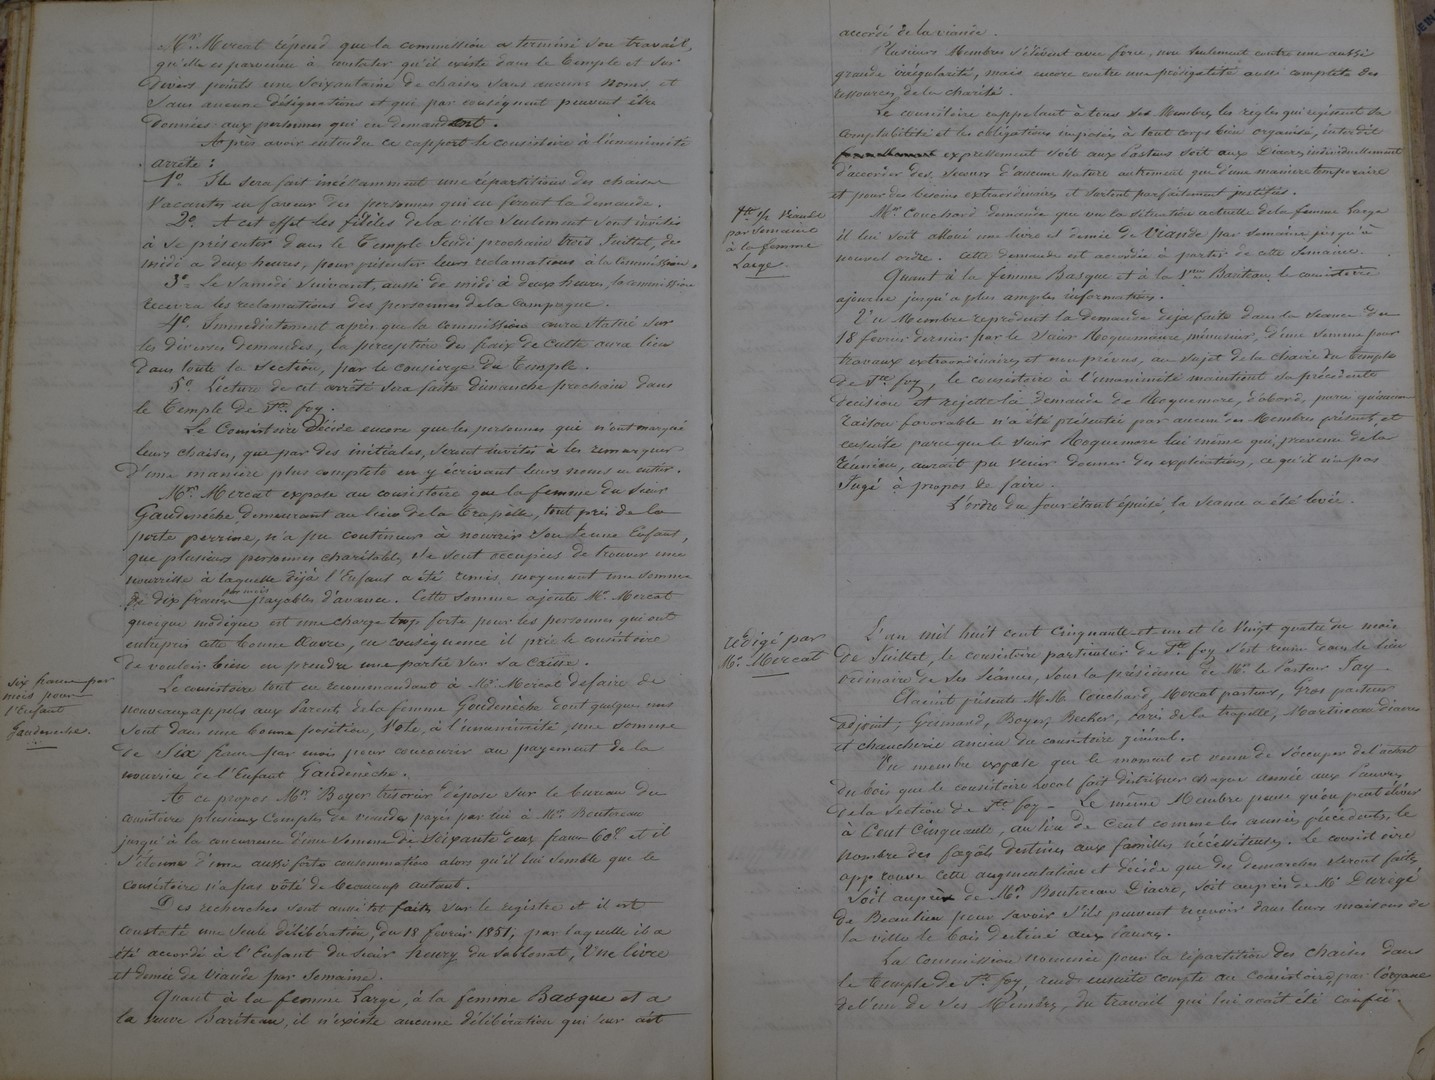 Mr. Mercat répond que la commission a terminé son travail,
qu'elle est parvenue à constater qu'il existe dans le Temple et sur
divers points une soixantaine de chaises sans aucuns noms et
sans aucune désignations et qui par conséquent peuvent être
données aux personnes qui en demandent.
Après avoir entendu ce rapport le consistoire à l'unanimité
arrête :
1o. Il sera fait incessamment une répartition des chaises
vacantes en faveur des personnes qui en feront la demande.
2o. A cet effet les fidèles de la ville seulement sont invités
à se présenter dans le Temple Jeudi prochain trois Juillet, de
midi a deux heures, pour présenter leurs réclamations à la commission.
3o. Le Samedi suivant, aussi de midi à deux heures, la commission
recevra les réclamations des personnes de la Campagne.
4o. Immédiatement après que la commission aura statué sur
les diverses demandes, la perception des fraix de culte aura lieu
dans toute la section, par le concierge du Temple.
5o. Lecture de cet arrêté sera faite dimanche prochain dans
le Temple de Ste. foy.
Le Consistoire décide encore que les personnes qui n'ont marqué
leurs chaises, que par des initiales, seront invités à les remarquer
d'une manière plus complète en y écrivant leurs noms en entier.
Mr. Mercat expose au consistoire que la femme du sieur
Gaudenèche, demeurant au lieu de la Trapelle, tout près de la
porte perrine, n'a pu continuer à nourrir son jeune Enfant,
que plusieurs personnes charitables se sont occupées de trouver une
nourrisse à laquelle déjà l'Enfant a été remis moyenant une somme
de dix francs par mois payables d'avance. Cette somme ajoute Mr. Mercat
quoique modique est une charge trop forte pour les personnes qui ont
entrepris cette bonne Œuvre, en conséquence il prie le consistoire
de vouloir bien en prendre une partie sur sa caisse.
six francs par
mois pour
l'Enfant
Gaudeneche.
Le consistoire tout en recommandant à Mr. Mercat de faire de
nouveaux appels aux Parents de la femme Gaudenèche dont quelques uns
sont dans une bonne position, Vote, à l'unanimité, une somme
de Six francs par mois pour concourir au payement de la
nourrice de l'Enfant Gaudenèche.
A ce propos Mr. Boyer trésorier dépose sur le bureau du
consistoire plusieurs Comptes de viandes payés par lui à Mr. Boutereau
jusqu'à la concurrence d'une somme de Soixante deux francs 60c et il
s'étonne d'une aussi forte consommation alors qu'il lui semble que le
consistoire n'a pas vôté de beaucoup autant.
Des recherches sont aussitot faites sur le registre et il est
constaté une seule délibération, du 18 février 1851, par laquelle il a
été accordé à l'Enfant du sieur heury du Sablonat, Une livre
et demie de viande par Semaine.
Quant à la femme Large, à la femme Basque et a
la veuve Bariteau, il n'existe aucune délibération qui leur ait
accordé de la viande.
Plusieurs Membres s'élèvent avec force, non seulement contre une aussi
grande irrégularité, mais encore contre une prodigalité aussi complète des
ressources de la charité.
Le consistoire rappelant à tous ses Membres les règles qui régissent sa
comptabilité et les obligations imposées à tout corps bien organisé, interdit
expressément soit aux Pasteurs soit aux Diacres individuellement
d'accorder des secours d'aucune nature autrement que d'une manière temporaire
et pour des besoins extraordinaires et surtout parfaitement justifiés.
1tt. 1/2 viande
par Semaine
à la femme
Large.
Mr. Couchard demande que vu la situation actuelle de la femme Large
il lui soit alloué une livre et demie de viande par semaine jusqu'à
nouvel ordre. Cette demande est accordée à partir de cette semaine.
Quant à la femme Basque et à la Vve Bariteau, le consistoire
ajourne jusqu'a plus amples informations.
Un Membre reproduit la demande déjà faite dans la Séance du
18 février dernier par le sieur Roquemaure, menuisier, d'une somme pour
travaux extraordinaires et non prévus, au sujet de la chaire du Temple
de Ste foy, le consistoire à l'unanimité maintient sa précédente
décision et rejette la demande de Roquemore, d'abord, parce qu'aucune
raison favorable n'a été présentée par aucun des Membres présents, et
ensuite parce que le sieur Roquemore lui même qui, prévenu de la
réunion, aurait pu venir donner des explications, ce qu'il n'a pas
Jugé à propos de faire.
L'ordre du jour étant épuisé, la séance a été levée.
redigé par
Mr. Mercat
L'an mil huit cent Cinquante et un et le Vingt quatre du mois
de Juillet, le consistoire particulier de Ste foy s'est réuni dans le lieu
ordinaire de ses séances, sous la présidence de Mr. le Pasteur Pay
Etaient présents M.M. Couchard, Mercat pasteurs, Gros pasteur
adjoint, Boyer, Becher, de la trapelle, Martineau diacres
et chaucherie ancien du consistoire général.
Un membre expose que le moment est venu de s'occuper de l'achat
du bois que le consistoire local fait distribuer chaque année aux Pauvres
de la section de Ste foy. Le même Membre pense qu'on peut élever
à Cent Cinquante, au lieu de cent comme les années précédentes, le
nombre des fagots destinés aux familles nécéssiteuses. Le consistoire
approuve cette augmentation et décide que des demarches seront faites
soit auprès de Mr. Boutereau Diacre, soit auprès de Mr. Durégé
de Beaulieu pour savoir s'ils peuvent reçevoir dans leurs maisons de
la ville le bois destiné aux Pauvres.
La Commission nommée pour la répartition des chaises dans
le Temple de Ste foy, rend ensuite compte au Consistoire, par l'organe
de l'un de ses Membres, du travail qui lui avait été confié.